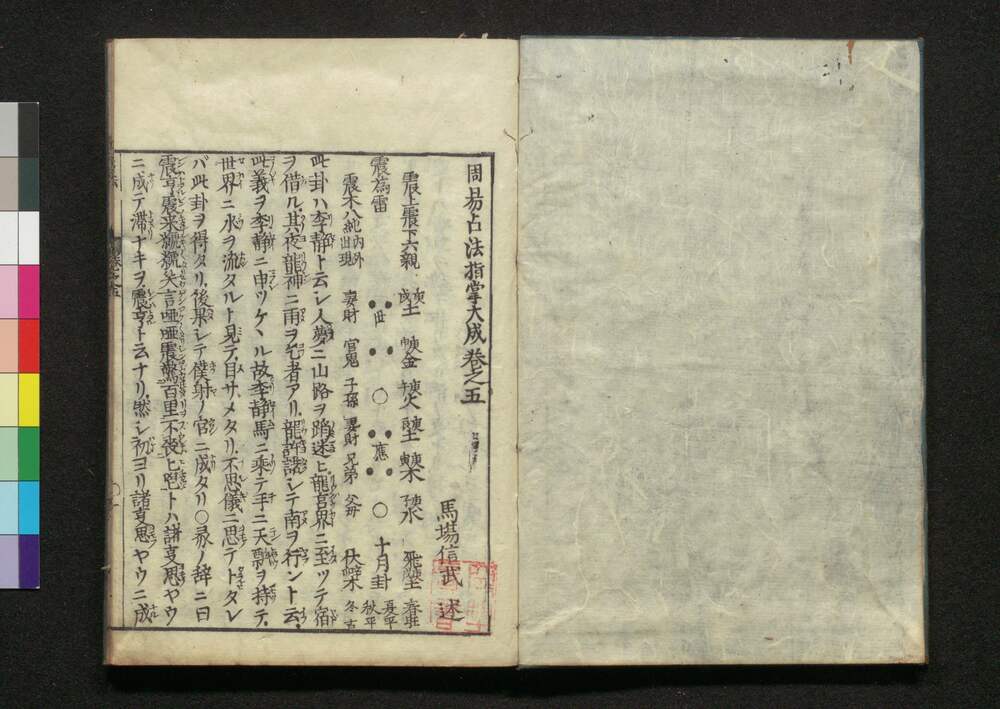 周易占法指掌大成巻之五
馬場信武 述
震上震下六親 庚戌土 庚申金 庚午火 庚辰土 庚寅木 庚子水 飛 春旺 夏平
震為雷 世 應 十月卦 秋平
震木八純内外出現 妻財 官鬼 子孫 妻財 兄弟 父母 伏 冬吉
此卦ハ李静ト云シ人夢ニ山路ヲ踏迷ヒ龍宮界ニ至ツテ宿
ヲ借ル其夜龍神ニ雨ヲ乞者アリ龍許諾シテ南ヲ行ント云
此義ヲ李静ニ申ツケヽル故李静馬ニ乗テ手ニ天瓢ヲ持テ
世界ニ水ヲ流タルト見テ目サメタリ不思儀ニ思テトタレ
バ此卦ヲ得タリ後果シテ僕射ノ官ニ成タリ〇彖ノ辞ニ曰
震亨震来虩虩笑言啞啞震驚百里不喪匕鬯トハ諸事思ヤウ
ニ成テ滞ナキヲ震亨ト云ナリ然シ初ヨリ諸事思ヤウニ成